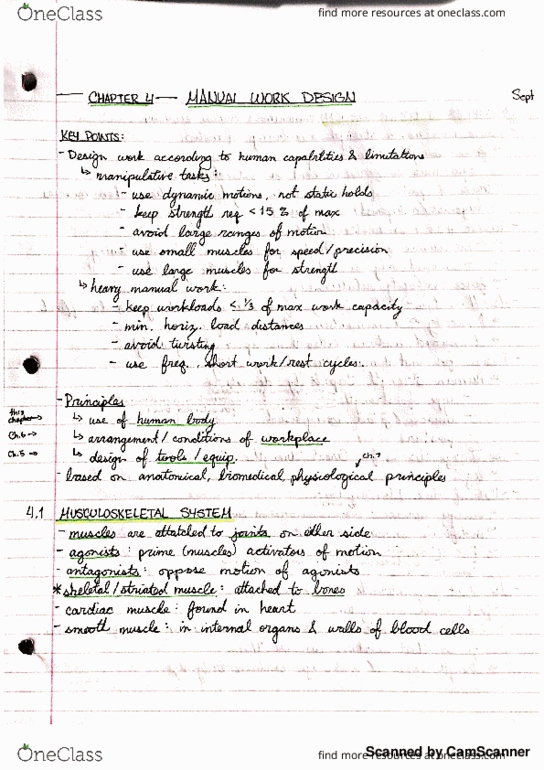 OneClass
find more resources at oneclass.com
CHAPTER 4 — MANUAL WORK DESIGN
Sept
KEY POINTS:
- Design work according to human capabilities & limitations
↳ manipulative tasks:
- use dynamic motions, not static holds
- keep strength req. <15% of max
- avoid large ranges of motion
- use small muscles for speed/precision
- use large muscles for strength
↳ heavy manual work:
- keep workloads < 1/3 of max work capacity
- min. horiz. load distances
- avoid twisting
- use freq. short work/rest cycles.
- Principles
this chapter → ↳ use of human body
Ch.6 → ↳ arrangement/conditions of workplace
Ch.5 → ↳ design of tools/equip.
- based on anatomical, biomedical, physiological principles
4.1 MUSCULOSKELETAL SYSTEM
- muscles are attatched to joints on either side
- agonists: prime (muscles) activators of motion
- antagonists: oppose motion of agonists
* skeletal/striated muscle: attached to bones
- cardiac muscle: found in heart
- smooth muscle: in internal organs & walls of blood cells
OneClass
find more resources at oneclass.com
Scanned by CamScanner